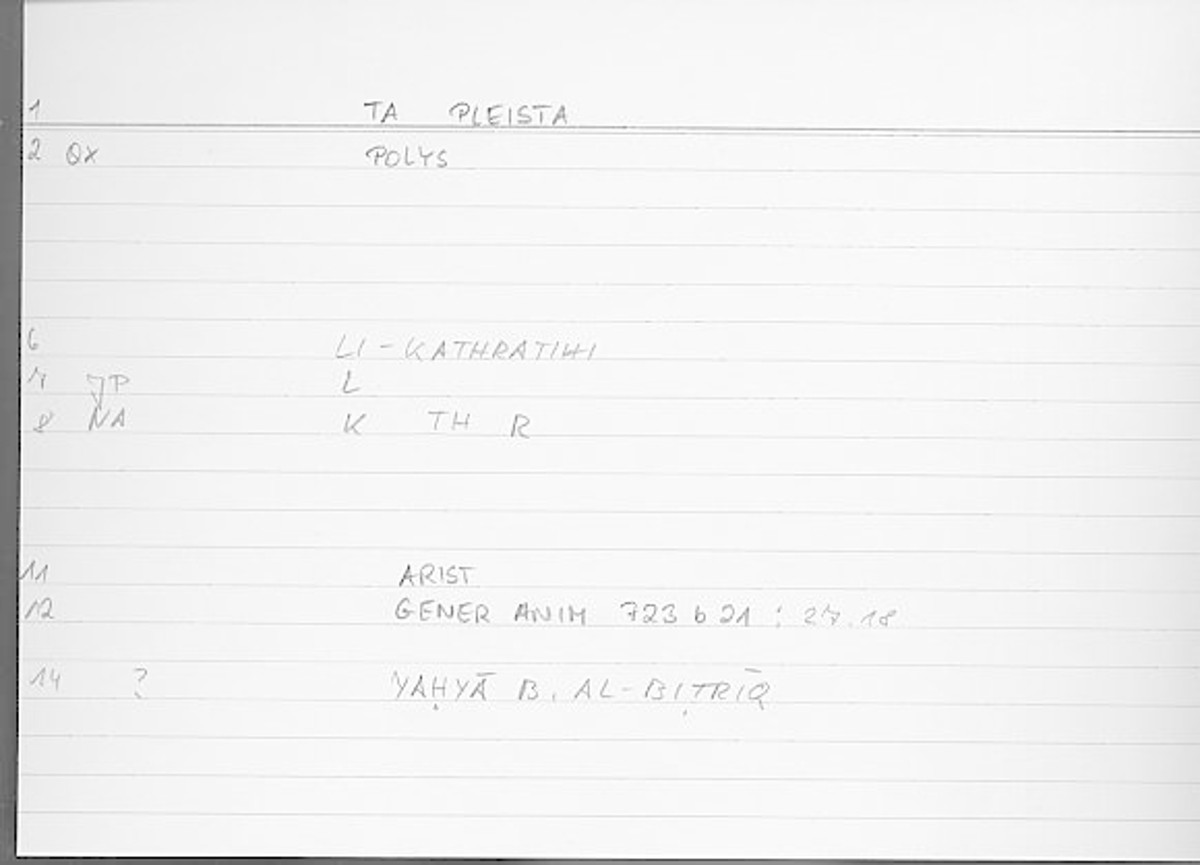 1 TA PLEISTA
2 QX POLYS
6 LI-KATHRATIHI
7 JP L
8 NA K TH R
11 ARIST
12 GENER ANIM 723 b 21 : 27.18
14 ? YAḤYĀ B. AL-BIṬRĪQ